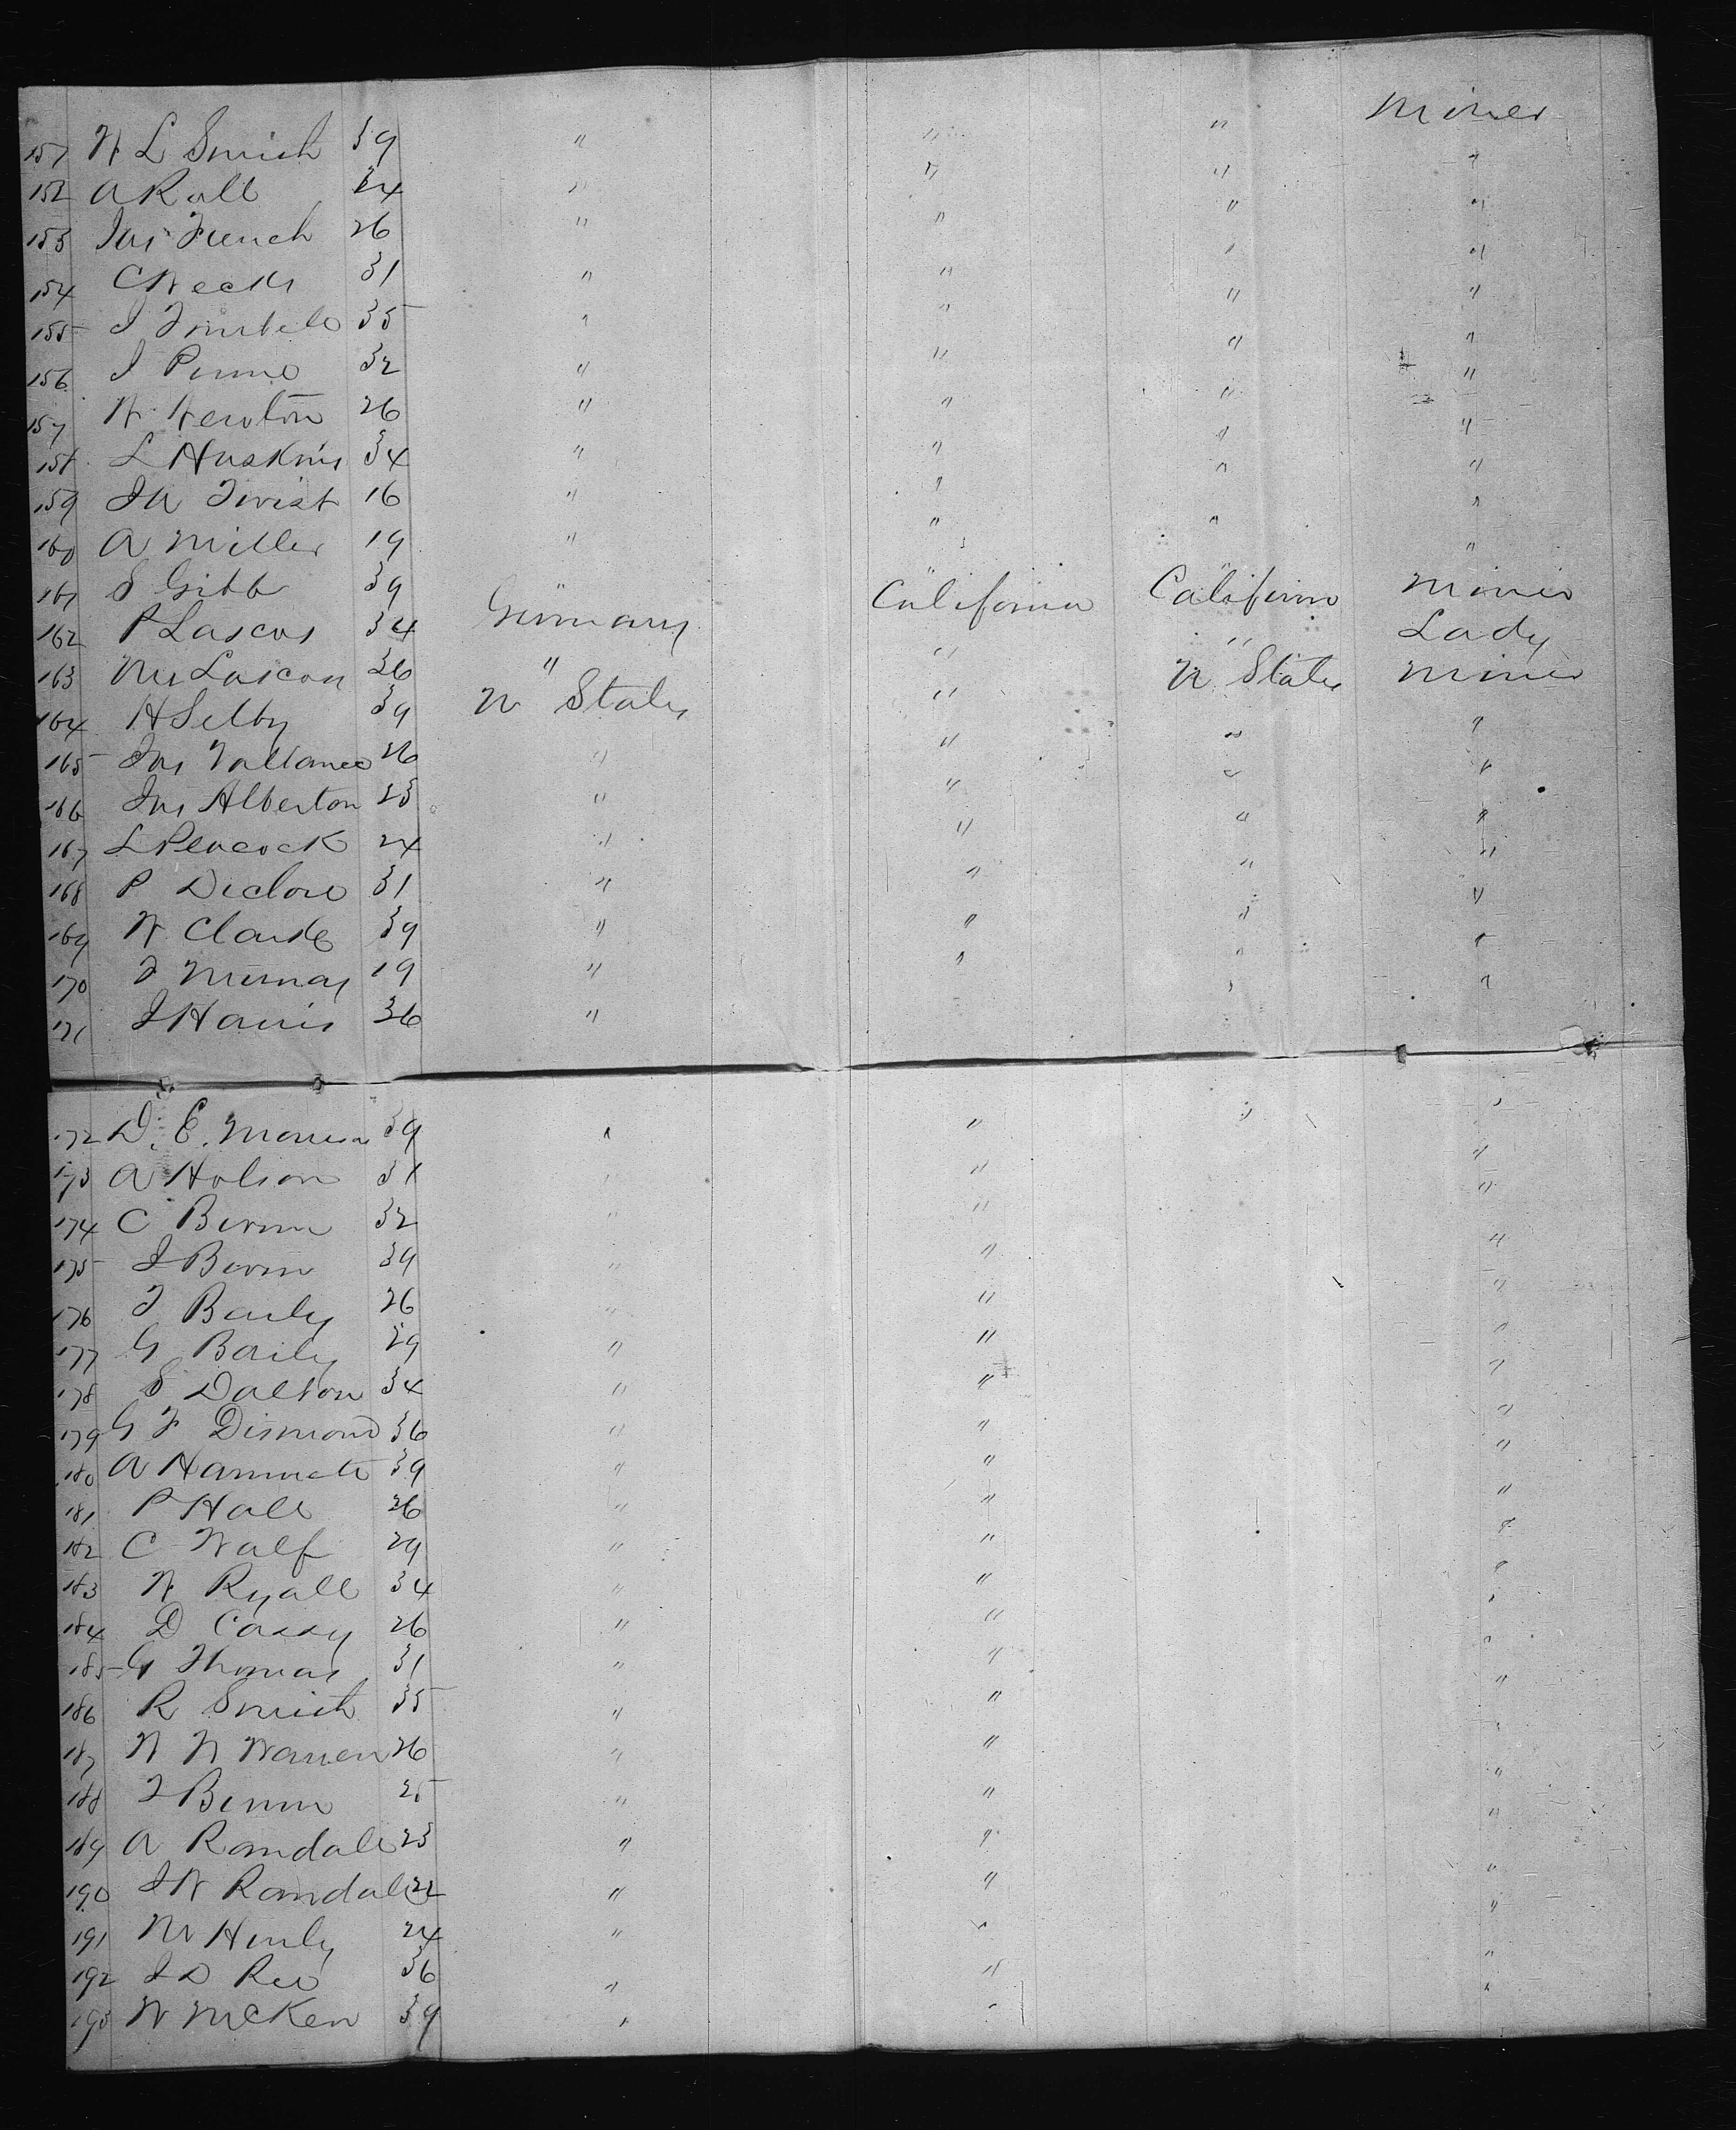 Miner
151 W L Smith 39 " " " "
152 A Rall 24 " " " "
153 Jas French 26 " " " "
154 C Weeks 31 " " " "
155 J 35 " " " "
156 J 32 " " " "
157 W Newton 26 " " " "
158 L Huskins 34 " " " "
159 J A Twist 16 " " " "
160 A Miller 19 " " " "
161 S Gibb 39 " " " "
162 P Lascos 34 Germany California California Miner
163 36 " " " Lady
164 H Selby 39 U States " U States Miner
165 Jas Vallance 26 " " " "
166 Jas Alberton 23 " " " "
167 L Peacock 24 " " " "
168 P 31 " " " "
169 W Clark 39 " " " "
170 T Murray 19 " " " "
171 J Harris 36 "
172 D. E. 39 " " " "
173 A Holson 31 " " "
174 C 32 " " "
175 J 39 " " "
176 T Baily 26 " " "
177 G Baily 29 " " "
178 S Dalton 34 " " "
179 G F Dismond 36 " " "
180 A 39 " " "
181 P Hall 26 " " "
182 C Walf 29 " " "
183 W Ryall 34 " " "
184 D Cassy 26 " " "
185 G Thomas 31 " " "
186 R Smith 35 " " "
187 W W Warren 26 " " "
188 T 25 " " "
189 A Randall 23 " " "
190 J W Randall 22 " " "
191 M Henly 24 " " "
192 J D 36 " " "
193 W McKen 39 " " "